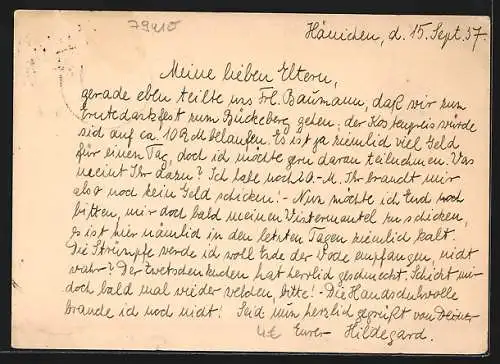 79410
Hänichen, d. 15. Sept. 37.
Meine lieben Eltern,
gerade eben teilte uns Frl. Baumann, daß wir zum
Erntedankfest zum Bückeberg gehen, der Kostenpreis würde
sich auf ca. 10 RM belaufen. Es ist ja ziemlich viel Geld
für einen Tag, doch ich möchte gern daran teilnehmen. Was
meint Ihr dazu? Ich habe noch 20.-M. Ihr braucht mir
also noch kein Geld schicken! - Nun möchte ich Euch noch
bitten, mir doch bald meinen Wintermantel zu schicken,
es ist hier nämlich in den letzten Tagen ziemlich kalt.
Die Strümpfe werde ich wohl Ende der Woche empfangen, nicht
wahr? Der Zwetschenkuchen hat herrlich geschmeckt. Schickt mir
doch bald mal wieder welchen, bitte! - Die Handschuhwolle
brauche ich noch nicht! Seid nun herzlich gegrüßt von
Eurer Hildegard.